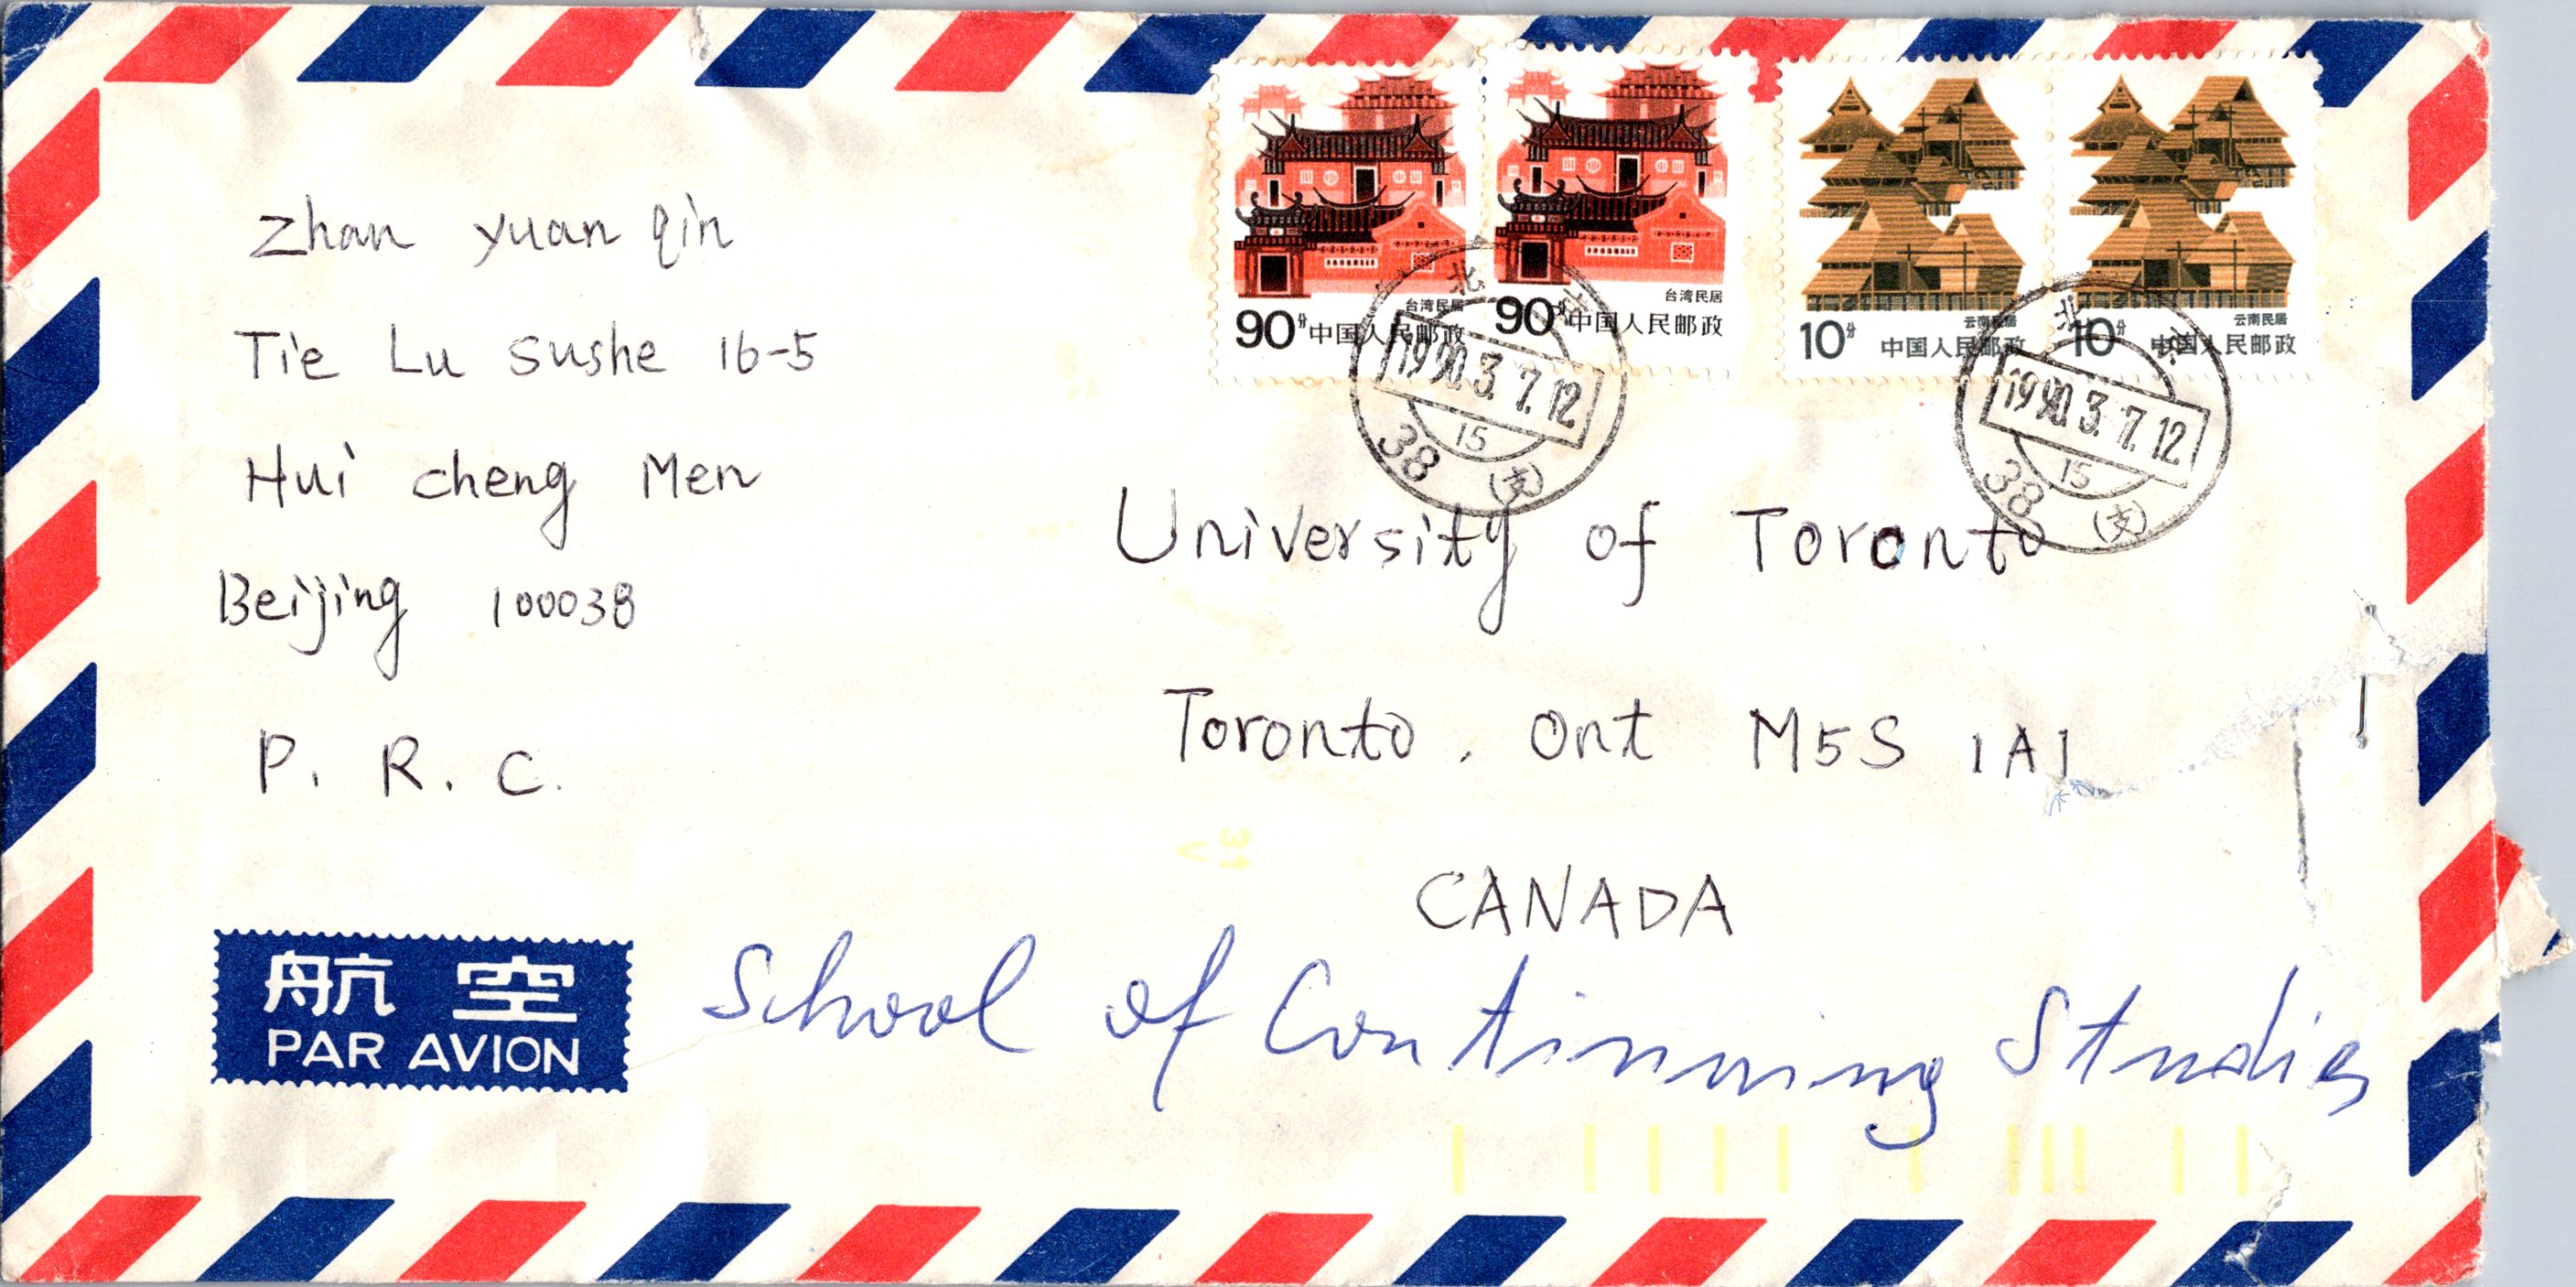 Zhan yuan qin
Tie Lu sushe 16-5
Hui cheng Men
Beijing 100038
P. R. C.
台湾民居
90分 中国人民邮政
台湾民居
90分 中国人民邮政
云南民居
10分 中国人民邮政
云南民居
10分 中国人民邮政
北京
1990.3.7.12
15
38 (支)
北京
1990.3.7.12
15
38 (支)
University of Toronto
Toronto, Ont M5S 1A1
CANADA
航空
PAR AVION
School of Continuing Studies